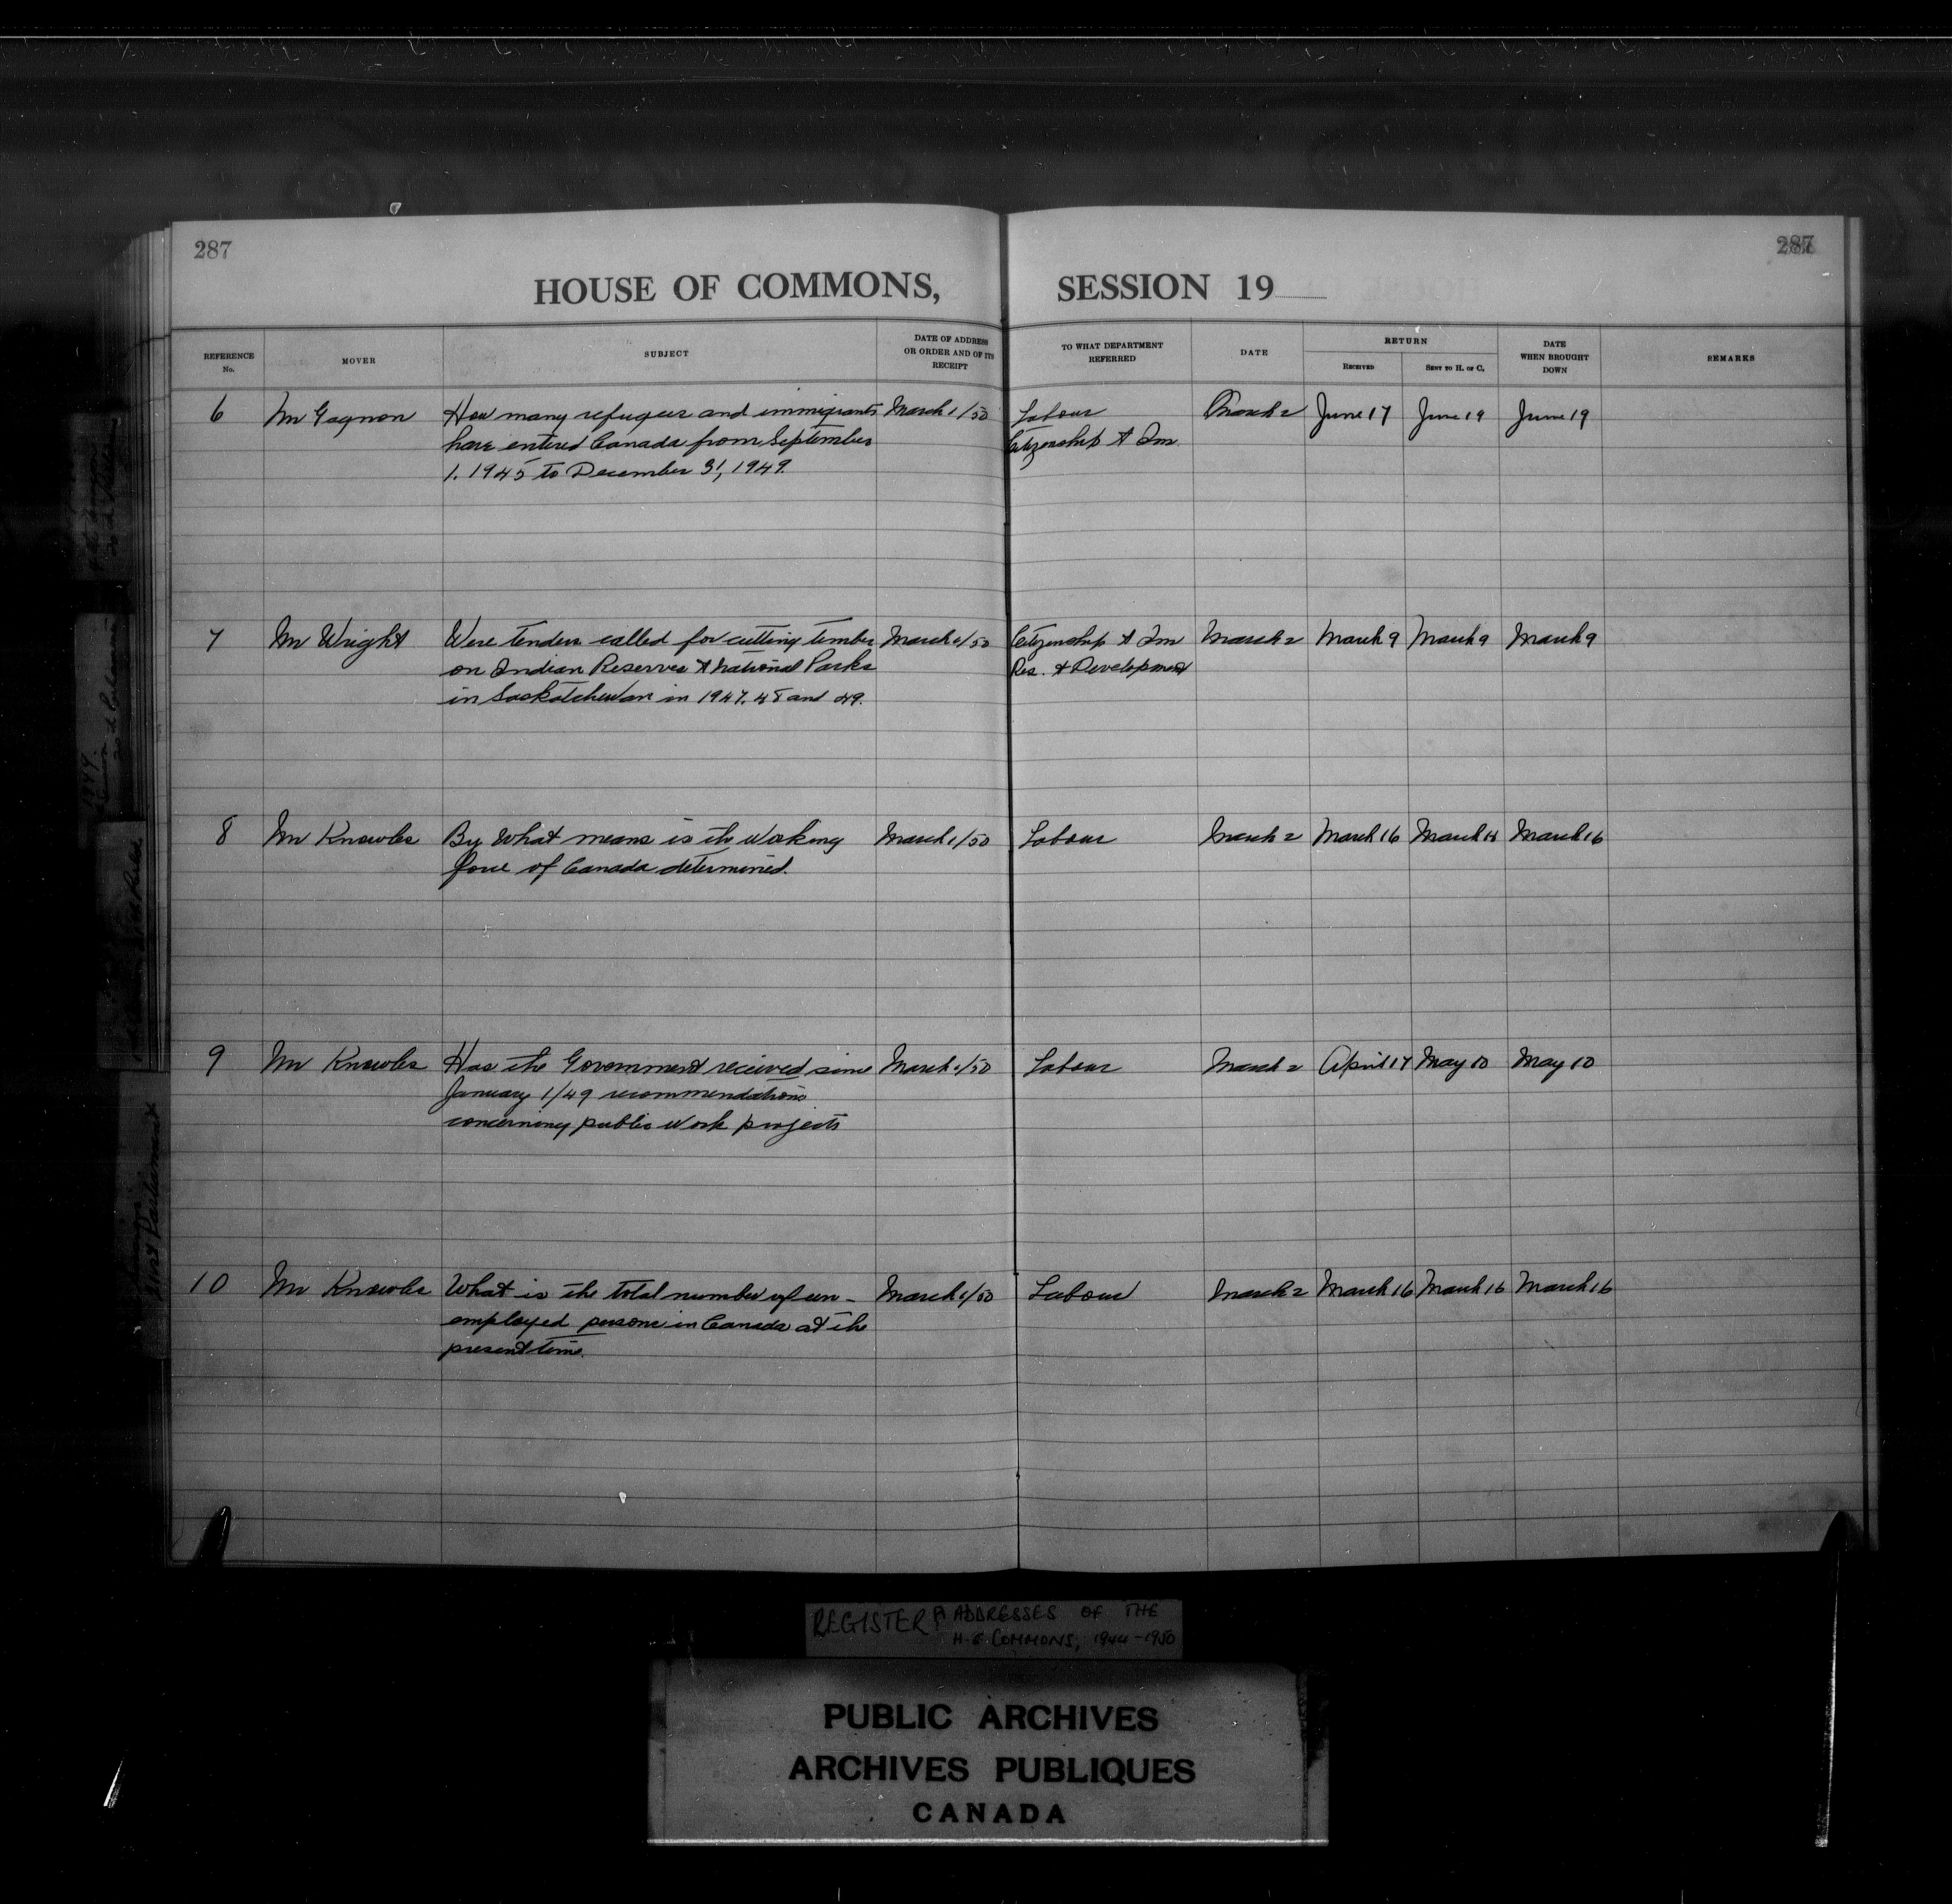 287
287
HOUSE OF COMMONS, SESSION 19
REFERENCE No.
MOVER
SUBJECT
DATE OF ADDRESS OR ORDER AND OF ITS RECEIPT
TO WHAT DEPARTMENT REFERRED
DATE
RETURN
RECEIVED
SENT TO H. OF C.
DATE WHEN BROUGHT DOWN
REMARKS
6 Mr Gagnon How many refugees and immigrants March 1/50 Labour March 2 June 17 June 19 June 19
have entered Canada from September Citizenship & Im
1. 1945 to December 31, 1949.
7 Mr Wright Were tenders called for cutting timber March 1/50 Citizenship & Im March 2 March 9 March 9 March 9
on Indian Reserves & National Parks Res. & Development
in Saskatchewan in 1947. 48 and 49.
8 Mr Knowles By What means is the Working March 1/50 Labour March 2 March 16 March March 16
force of Canada determined.
9 Mr Knowles Has the Government received since March 1/50 Labour March 2 April 17 May 10 May 10
January 1/49 recommendations
concerning public Work projects
10 Mr Knowles What is the total number of un- March 1/50 Labour March 2 March 16 March 16 March 16
employed persons in Canada at the
present time.
REGISTER ADDRESSES OF THE
H. of COMMONS, 1944-1950
PUBLIC ARCHIVES
ARCHIVES PUBLIQUES
CANADA